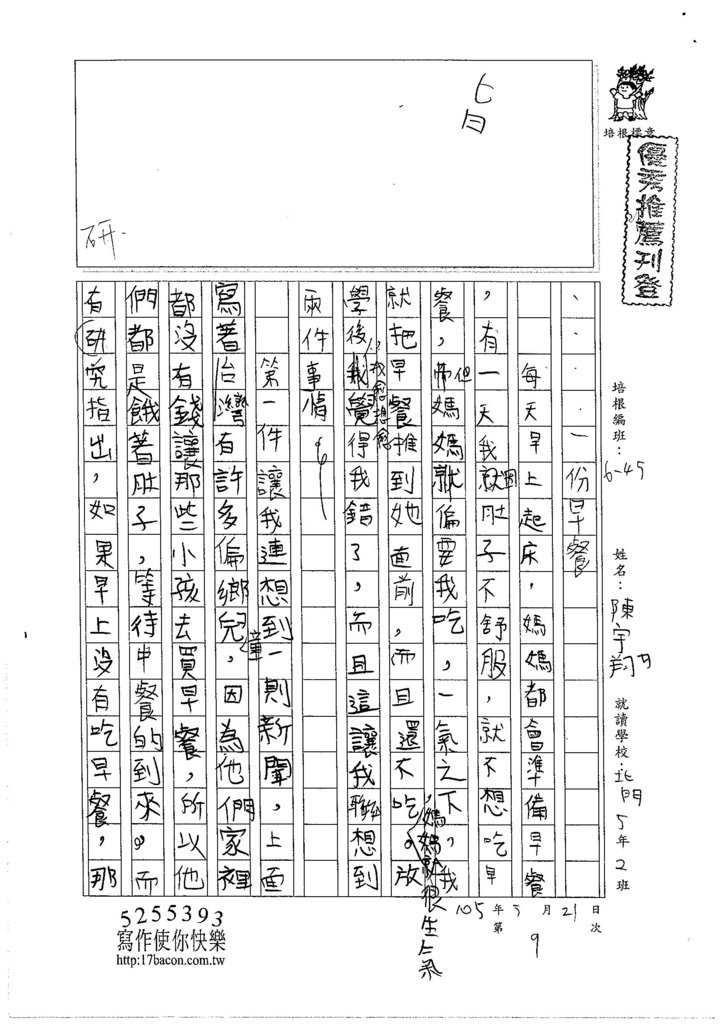 培根標章
優秀推薦刊登
培根編班：6-45
姓名：陳宇翔
就讀學校：北門5年2班
105年5月21日
第9次
旨
研
一份早餐
每天早上起床，媽媽都會準備早餐
，有一天我因肚子不舒服，就不想吃早
餐，但媽媽就偏要我吃，一氣之下，我
就把早餐推到她面前，而且還不吃，媽媽就很生氣。放
學後，我愈想愈覺得我錯了，而且這讓我聯想到
兩件事情。
第一件讓我連想到一則新聞，上面
寫著台灣有許多偏鄉兒童，因為他們家裡
都沒有錢讓那些小孩去買早餐，所以他
們都是餓著肚子，等待中餐的到來。而
有研究指出，如果早上沒有吃早餐，那
5255393
寫作使你快樂
http:17bacon.com.tw